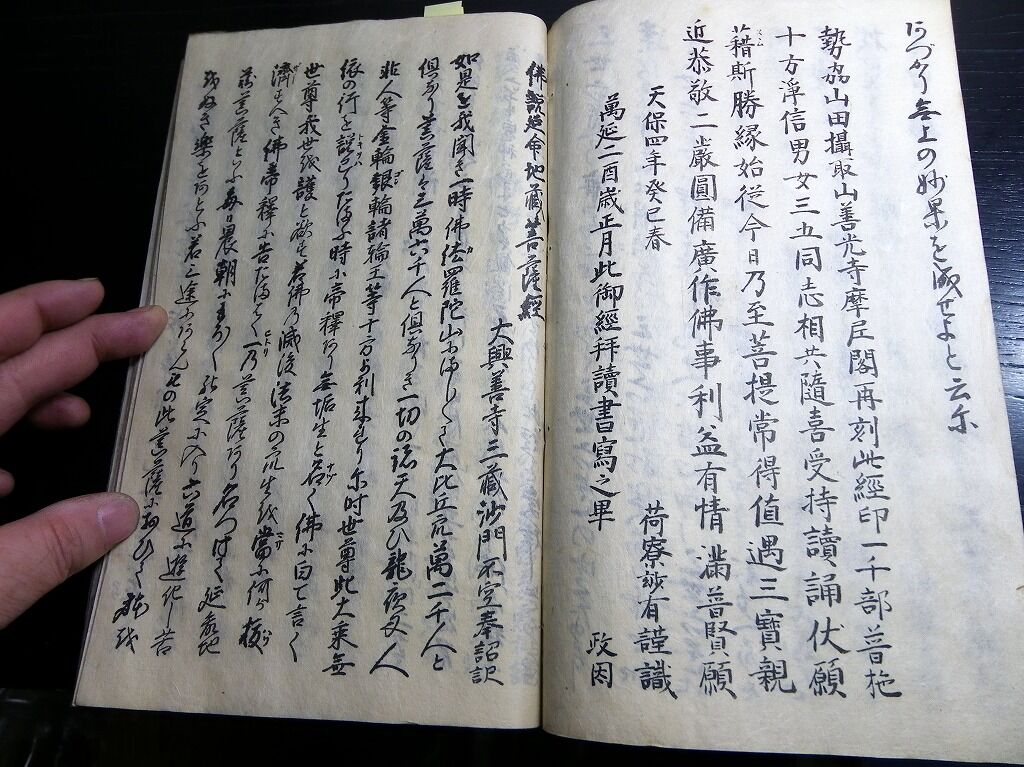 無上の妙果を成せよと云尓
勢州山田攝取山善光寺摩尼閣再刻此經印一千部普施
十方淨信男女三五同志相共隨喜受持讀誦伏願
藉斯勝縁始從今日乃至菩提常得値遇三寶親
近恭敬二嚴圓備廣作佛事利益有情滿普賢願
天保四年癸巳春 荷寮 有謹識
萬延二酉歳正月此御經拜讀書寫之畢 政因
佛説延命地藏菩薩經
大興善寺三藏沙門不空奉詔訳
如是を我聞き一時佛佉羅陀山にましく大比丘衆萬二千人と
倶なり菩薩三萬六千人と倶なりき一切の諸天及ひ龍夜叉人
非人等金輪銀輪諸輪王等十方より来れり尓時世尊此大乗無
依の行を説已りたまふ時に帝釋あり無垢生と名く佛に白て言く
世尊我世を護と欲を若佛の滅後法末の衆生を當に何か救
濟すへき佛帝釋に告たまはく一の菩薩あり名つけて延命地
藏菩薩といふ毎日晨朝に
定に入り六道に遊化し苦
をぬき樂をあとふ若三途にあらんもの此菩薩におひて